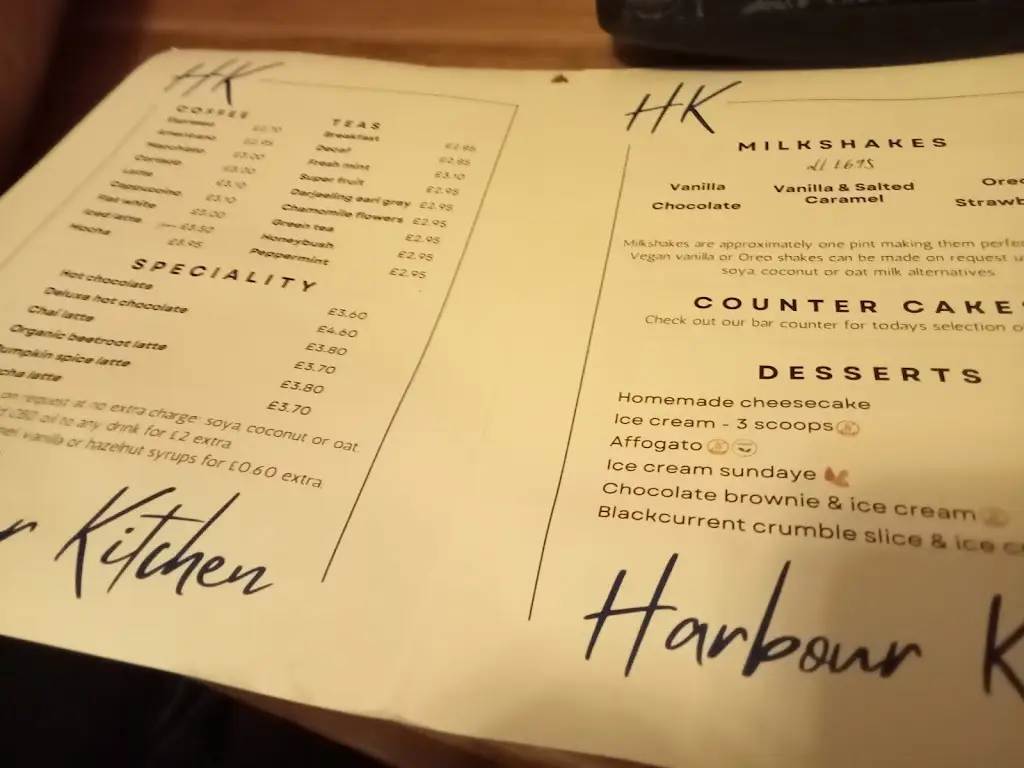 HK
COFFEE
Espresso £2.70
Americano £2.95
Macchiato £3.00
Cortado £3.00
Latte £3.10
Cappuccino £3.10
Flat white £3.00
Iced latte £3.50
Mocha £3.95
TEAS
Breakfast £2.95
Decaf £2.85
Fresh mint £3.10
Super fruit £2.95
Darjeeling earl grey £2.95
Chamomile flowers £2.95
Green tea £2.95
Honeybush £2.95
Peppermint £2.95
SPECIALITY
Hot chocolate £3.60
Deluxe hot chocolate £4.60
Chai latte £3.80
Organic beetroot latte £3.70
umpkin spice latte £3.80
cha latte £3.70
on request at no extra charge: soya, coconut or oat.
CBD oil to any drink for £2 extra.
vanilla or hazelnut syrups for £0.60 extra.
r Kitchen
HK
MILKSHAKES
all £6.95
Vanilla
Chocolate
Vanilla & Salted
Caramel
Oreo
Strawb
Milkshakes are approximately one pint making them perfe
Vegan vanilla or Oreo shakes can be made on request u
soya, coconut or oat milk alternatives
COUNTER CAKES
Check out our bar counter for todays selection o
DESSERTS
Homemade cheesecake
Ice cream - 3 scoops
Affogato
Ice cream sundaye
Chocolate brownie & ice cream
Blackcurrent crumble slice & ice c
Harbour K